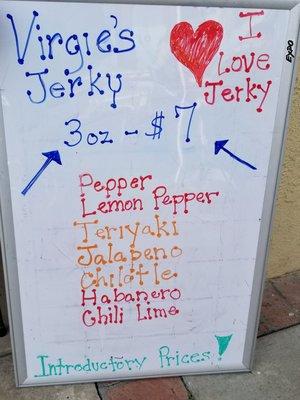 Virgie's
Jerky
I
Love
Jerky
3oz - $7
Pepper
Lemon Pepper
Teriyaki
Jalapeno
Chilotle
Habanero
Chili Lime
Introductory Prices!
EXPO